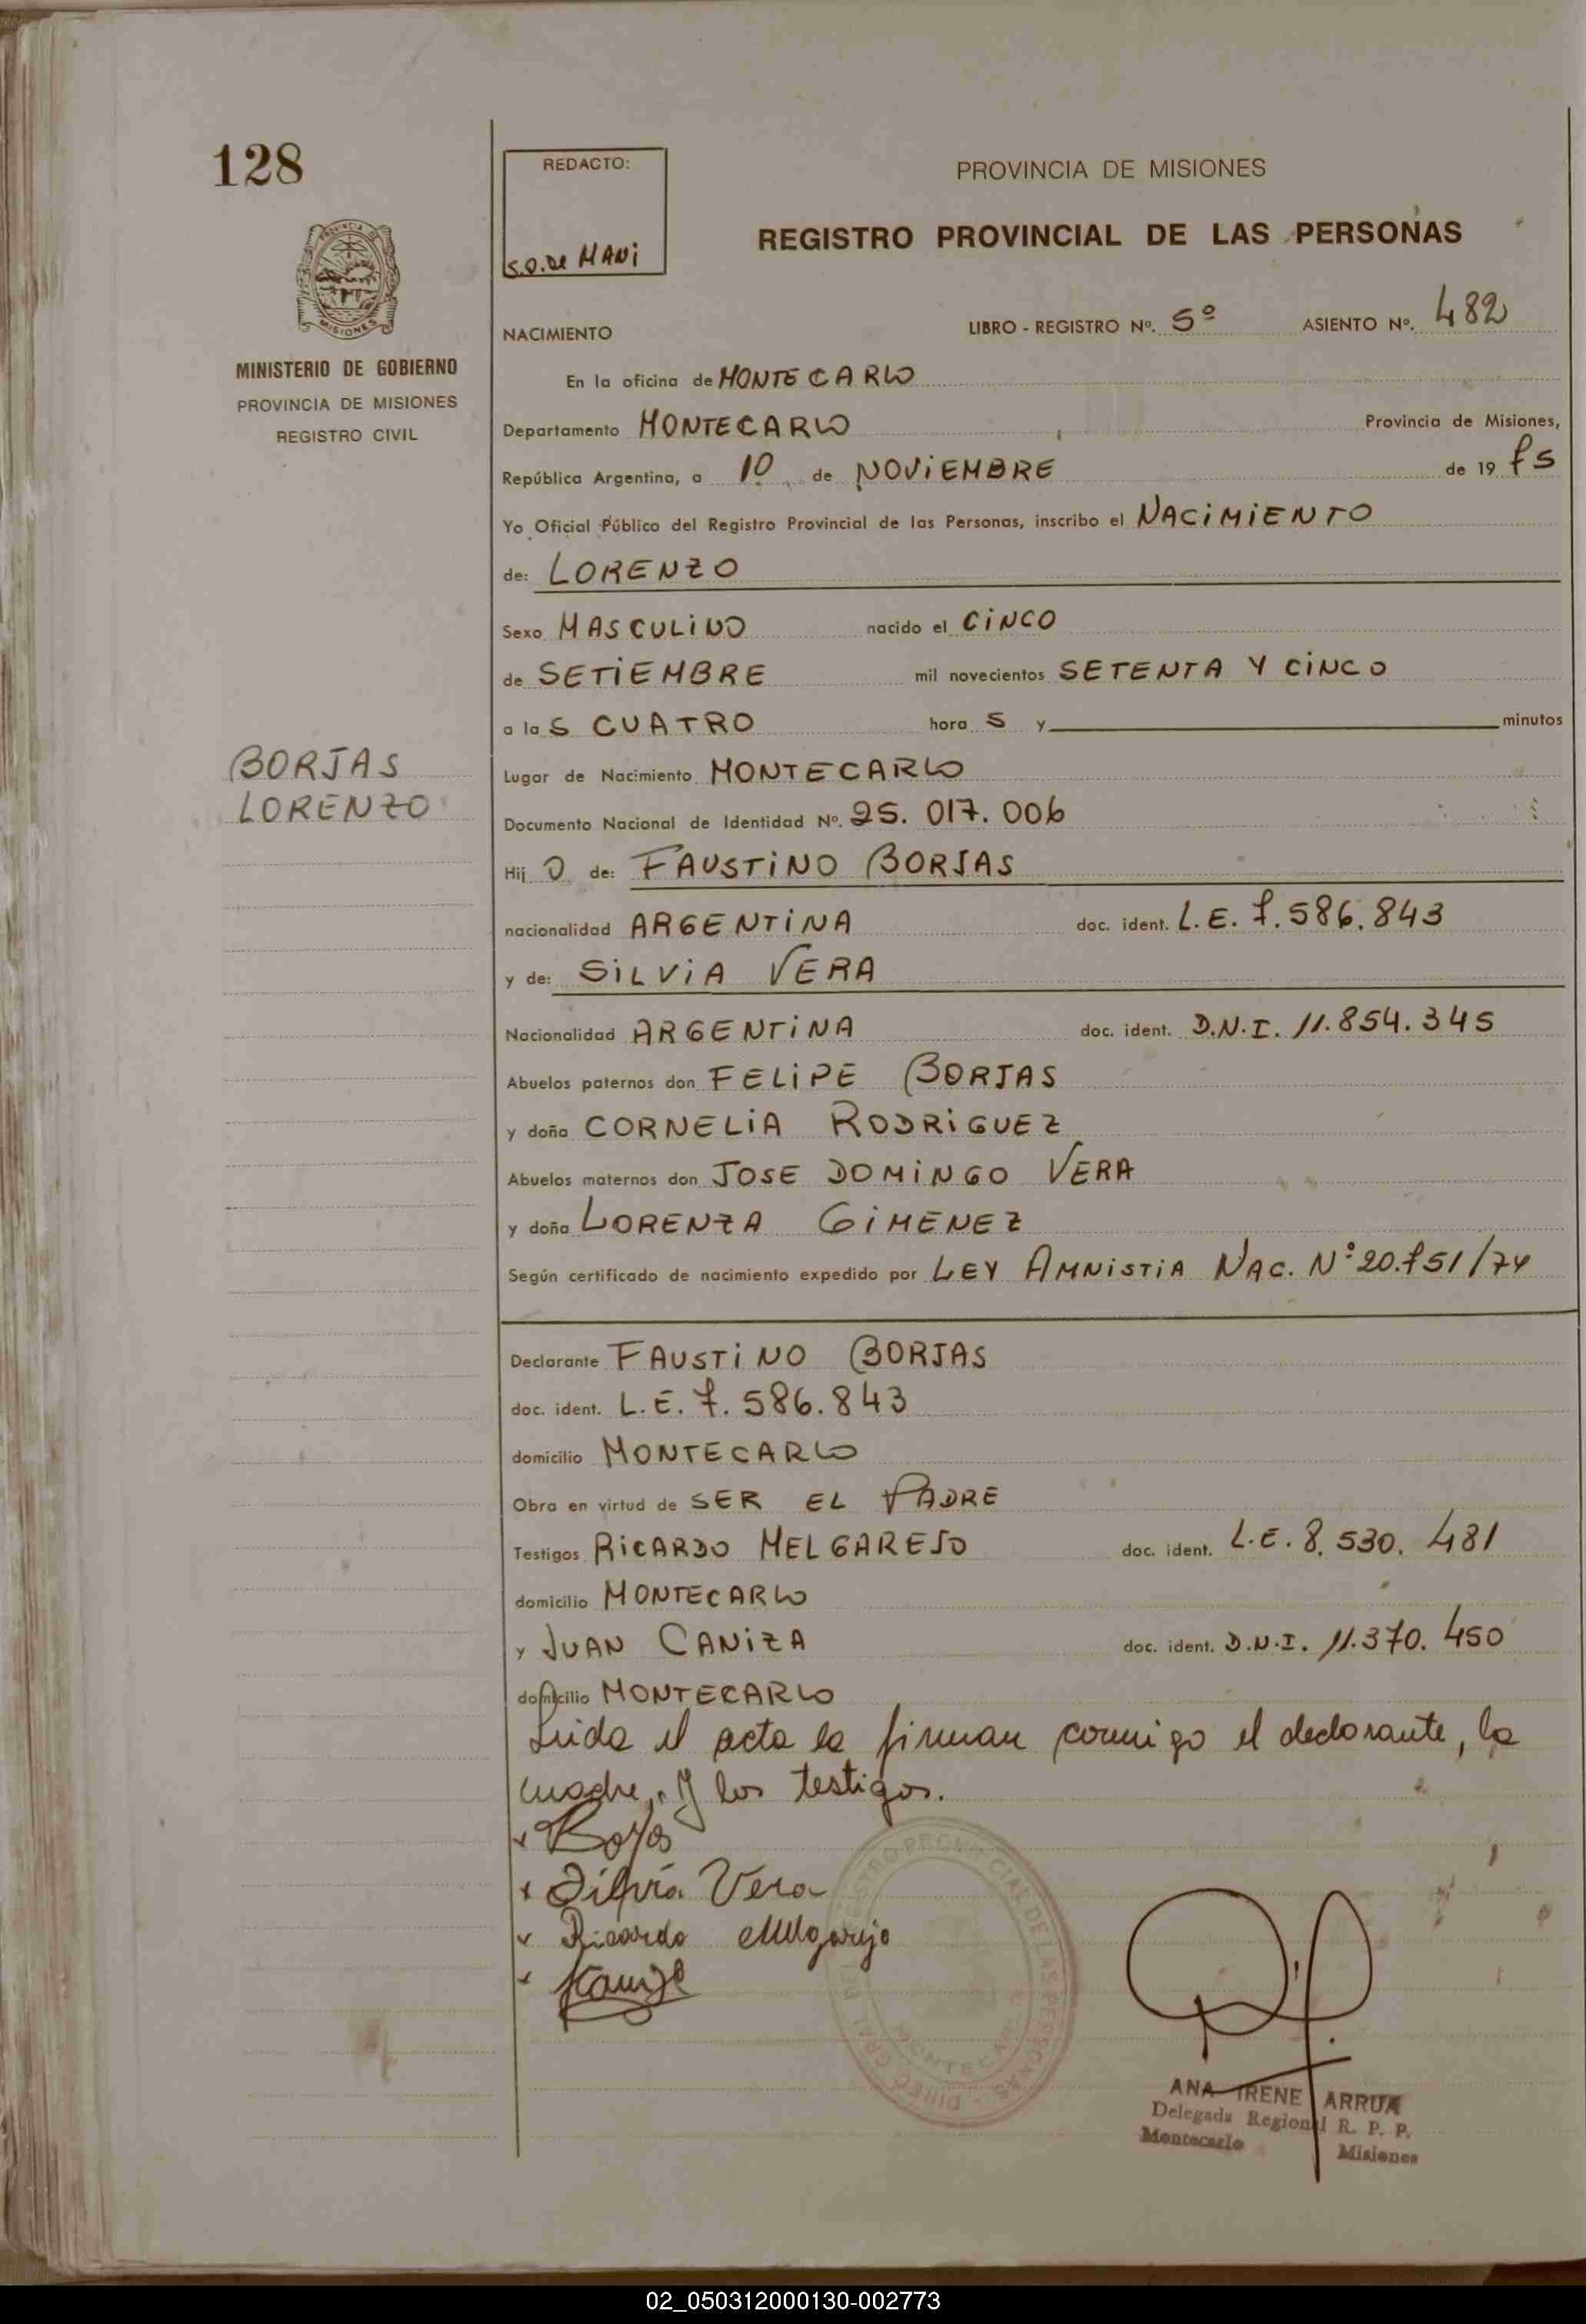 128
REDACTO:
S.O. De MANi
PROVINCIA DE MISIONES
REGISTRO PROVINCIAL DE LAS PERSONAS
MISIONES
MINISTERIO DE GOBIERNO
PROVINCIA DE MISIONES
REGISTRO CIVIL
NACIMIENTO LIBRO - REGISTRO Nº. 5º ASIENTO Nº. 482
En la oficina de MONTECARLO
Departamento MONTECARLO Provincia de Misiones,
República Argentina, a 10 de NOViEMBRE de 19 75
Yo Oficial Público del Registro Provincial de las Personas, inscribo el NACiMiENTO
de: LORENZO
Sexo MASCULiNO nacido el CiNCO
de SETiEMBRE mil novecientos SETENTA Y CiNCO
a la S CUATRO hora S y minutos
BORJAS
LORENZO
Lugar de Nacimiento MONTECARLO
Documento Nacional de Identidad Nº. 25.017.006
Hij O de: FAUSTiNO BORJAS
nacionalidad ARGENTiNA doc. ident. L.E. 7.586.843
y de: SiLViA VERA
Nacionalidad ARGENTiNA doc. ident. D.N.I. 11.854.345
Abuelos paternos don FELiPE BORJAS
y doña CORNELiA RODRiGUEZ
Abuelos maternos don JOSE DOMiNGO VERA
y doña LORENZA GiMENEZ
Según certificado de nacimiento expedido por LEY AMNiSTiA NAC. Nº 20.751/74
Declarante FAUSTiNO BORJAS
doc. ident. L.E. 7.586.843
domicilio MONTECARLO
Obra en virtud de SER EL PADRE
Testigos RiCARDO MELGAREJO doc. ident. L.E. 8.530.481
domicilio MONTECARLO
y JUAN CANiZA doc. ident. D.N.I. 11.370.450
domicilio MONTECARLO
Leida el acta la firman conmigo el declarante, la
madre, y los testigos.
Silvia Vera
Ricardo Melgarejo
DIREC. GRAL. DEL REGISTRO PROVINCIAL DE LAS PERSONAS
MONTECARLO
ANA IRENE ARRUA
Delegada Regional R. P. P.
Montecarlo Misiones
02_050312000130-002773